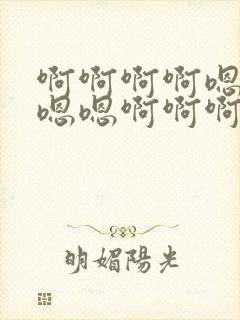 啊啊啊啊嗯
嗯嗯啊啊啊
明媚陽光